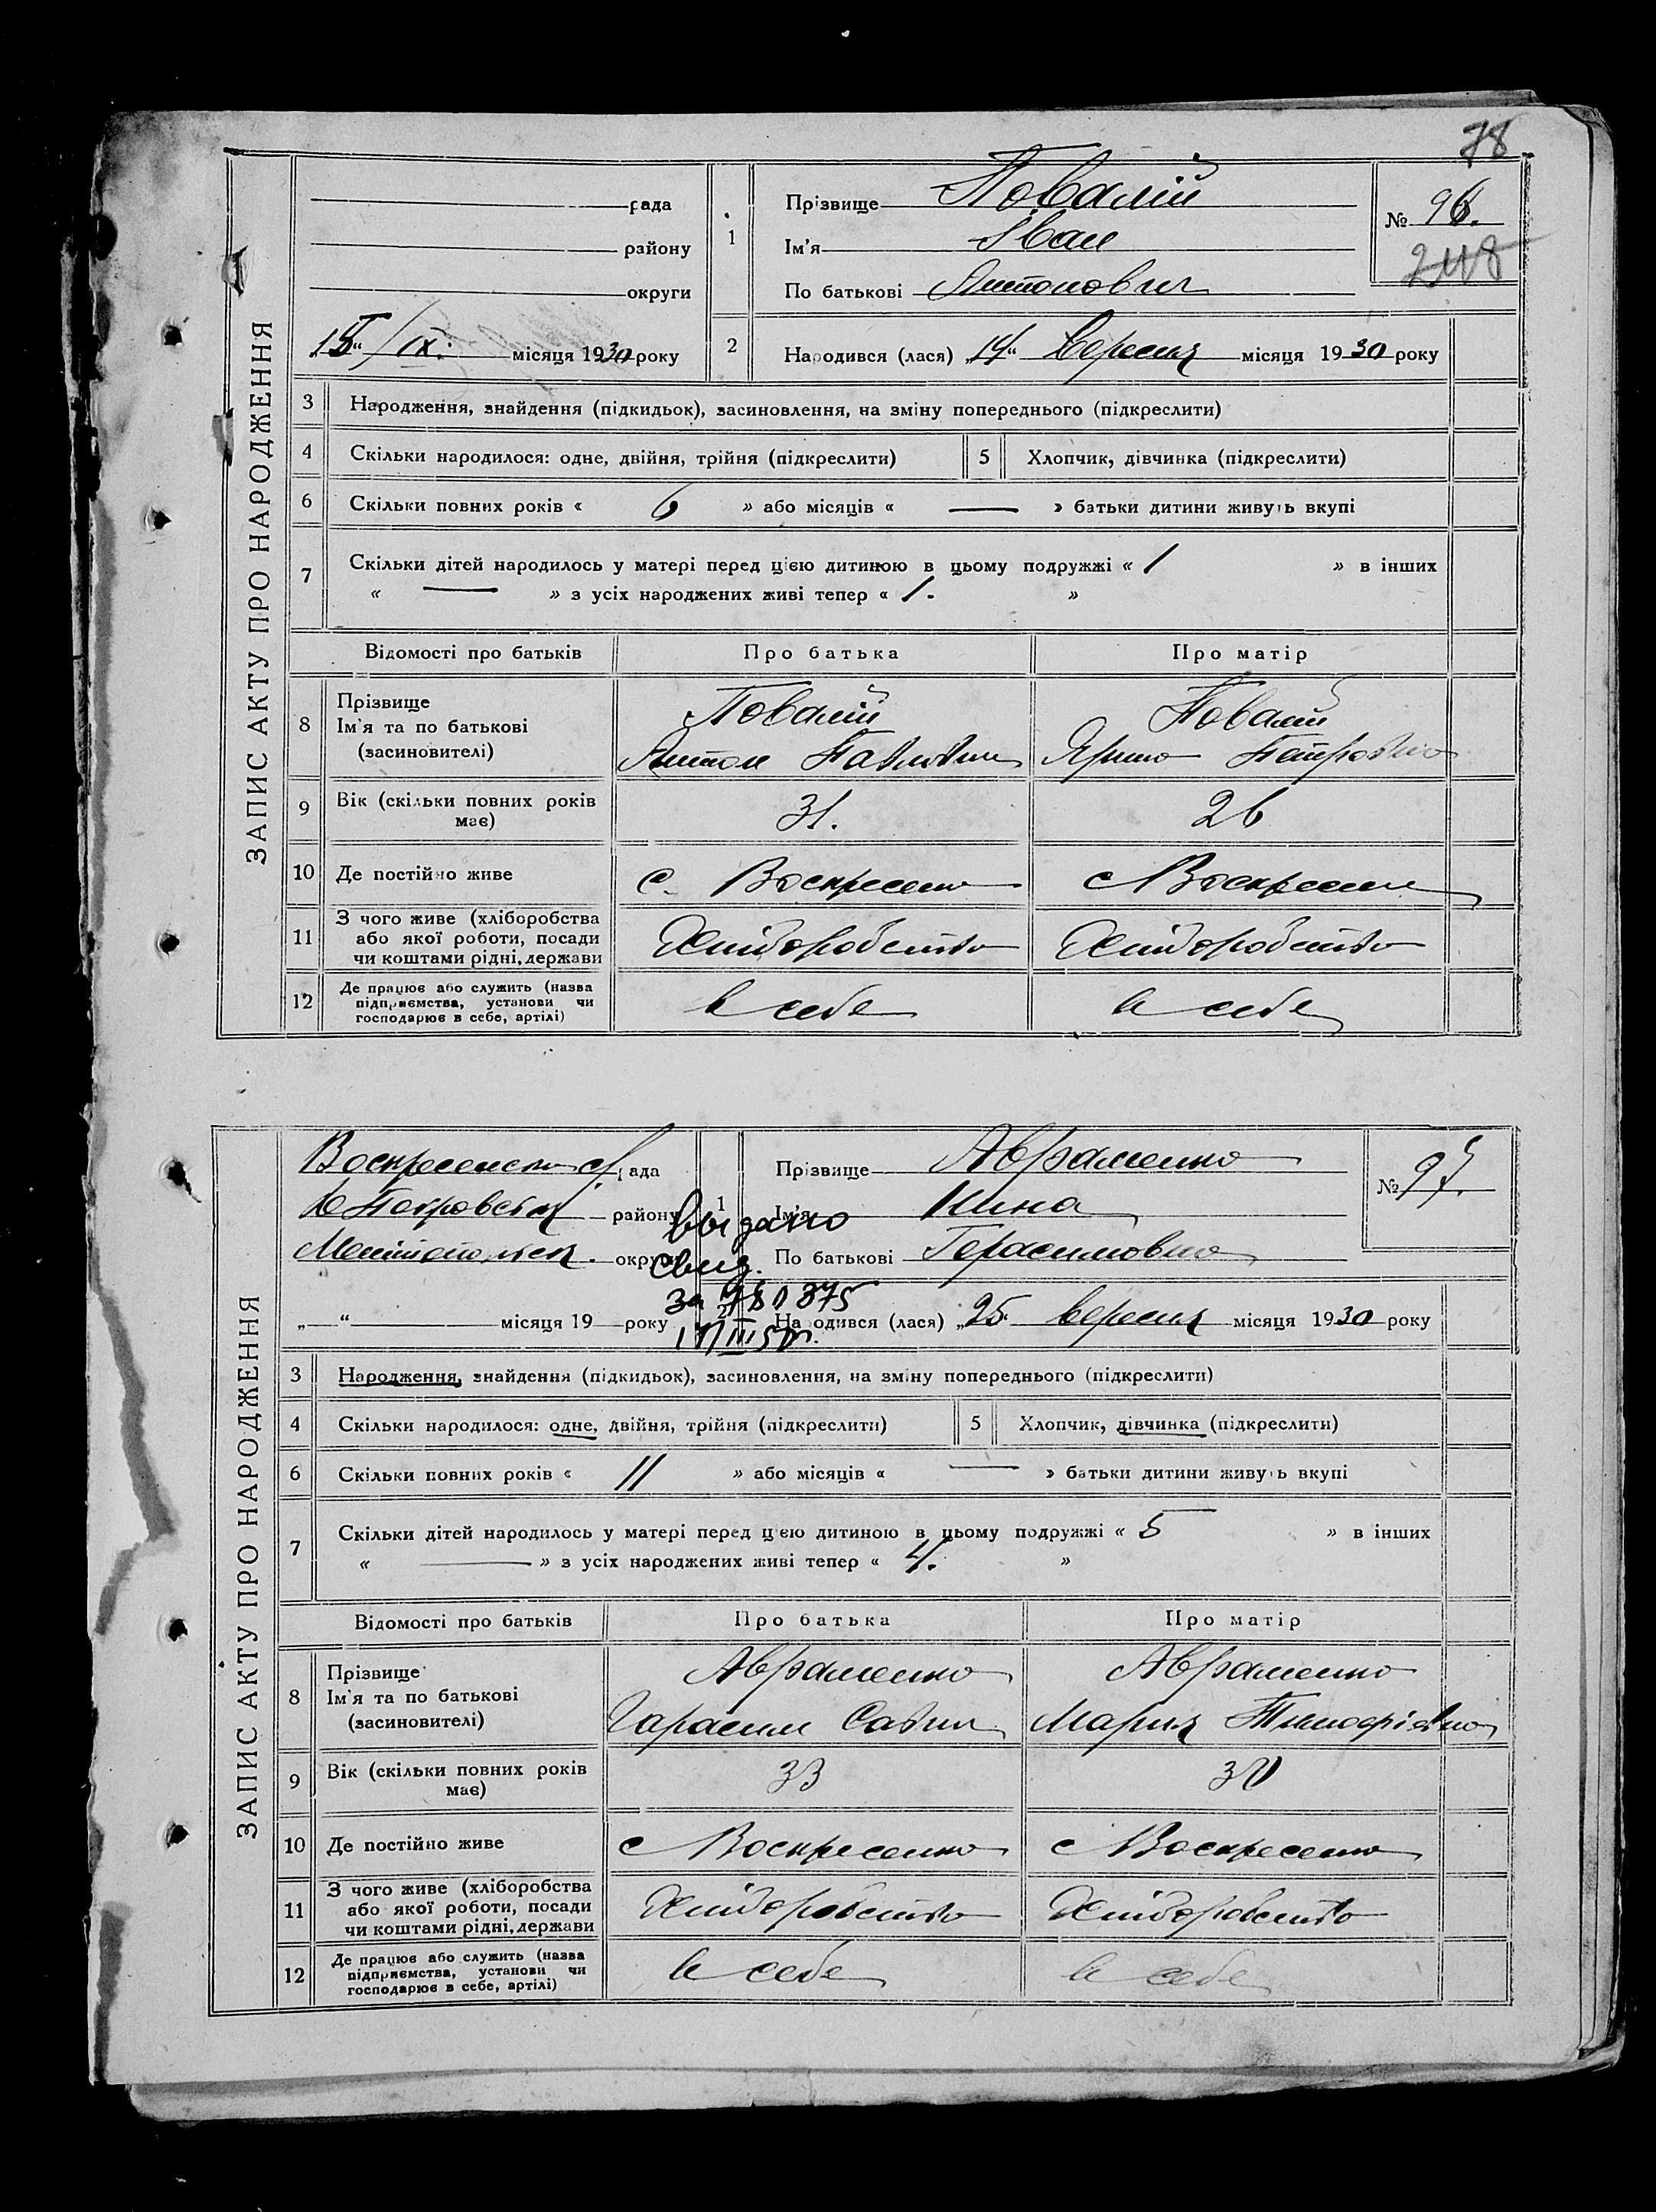 78
ЗАПИС АКТУ ПРО НАРОДЖЕННЯ
рада
району
округи
15/IX. місяця 1930 року
1
Прізвище Повалій
Ім'я Іван
По батькові Антонович
№ 96.
248
2 Народився (лася) „14“ вересня місяця 1930 року
3 Народження, знайдення (підкидьок), засиновлення, на зміну попереднього (підкреслити)
4 Скільки народилося: одне, двійня, трійня (підкреслити) 5 Хлопчик, дівчинка (підкреслити)
6 Скільки повних років « 6 » або місяців « — » батьки дитини живуть вкупі
7 Скільки дітей народилось у матері перед цією дитиною в цьому подружжі « 1 » в інших
« — » з усіх народжених живі тепер « 1. »
Відомості про батьків Про батька Про матір
8 Прізвище Повалій Повалій
Ім'я та по батькові
(засиновителі) Антон Павлович Ярина Петровна
9 Вік (скільки повних років має) 31. 26
10 Де постійно живе с. Воскресенка с Воскресенка
11 З чого живе (хліборобства
або якої роботи, посади
чи коштами рідні, держави Хліборобство Хліборобство
12 Де працює або служить (назва
підприємства, установи чи
господарює в себе, артілі) в себе в себе
ЗАПИС АКТУ ПРО НАРОДЖЕННЯ
Воскресенска с/рада
району
округи
„—“ місяця 19 року
выдано
свид.
за
1
Прізвище Авраменко
Ім'я Нина
По батькові Герасимовна
№ 97.
2 Народився (лася) „25“ вересня місяця 1930 року
3 Народження, знайдення (підкидьок), засиновлення, на зміну попереднього (підкреслити)
4 Скільки народилося: одне, двійня, трійня (підкреслити) 5 Хлопчик, дівчинка (підкреслити)
6 Скільки повних років « 11 » або місяців « — » батьки дитини живуть вкупі
7 Скільки дітей народилось у матері перед цією дитиною в цьому подружжі « 5 » в інших
« — » з усіх народжених живі тепер « 4. »
Відомості про батьків Про батька Про матір
8 Прізвище Авраменко Авраменко
Ім'я та по батькові
(засиновителі) Гарасим Савич Мария Тимофіївна
9 Вік (скільки повних років має) 33 30
10 Де постійно живе с Воскресенка с Воскресенка
11 З чого живе (хліборобства
або якої роботи, посади
чи коштами рідні, держави Хліборобство Хліборобство
12 Де працює або служить (назва
підприємства, установи чи
господарює в себе, артілі) в себе в себе